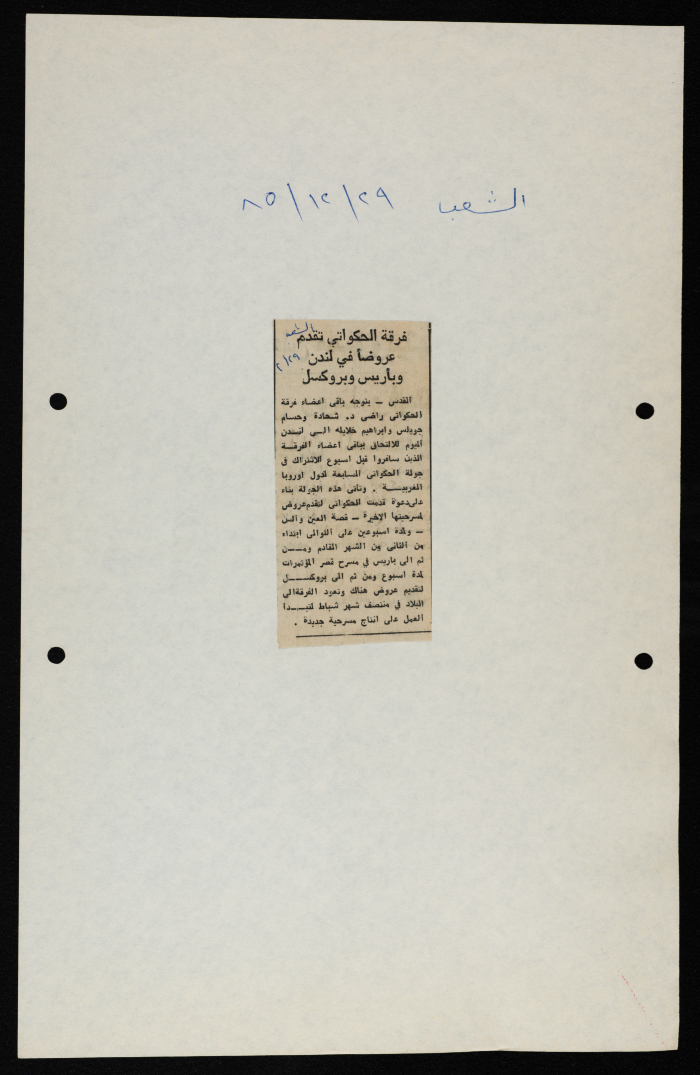 الشعب ٨٥/١٢/٢٩
فرقة الحكواتي تقدم
عروضاً في لندن
وباريس وبروكسل
الشعب
٢٩/
القدس ـ يتوجه باقي اعضاء فرقة
الحكواتي راضي د. شحادة وحسام
جويلس وابراهيم خلايله الـى لنـدن
اليوم للالتحاق بباقي اعضاء الفرقـة
الذين سافروا قبل اسبوع للاشتراك في
جولة الحكواتي السابعة لدول اوروبا
الغربيـــة . وتأتي هذه الجولة بناء
على دعوة قدمت للحكواتي لتقديم عروض
لمسرحيتها الاخيرة ـ قصة العين والسن
ـ ولمدة اسبوعين على التوالي ابتداء
من الثاني من الشهر القادم ومـــن
ثم الى باريس في مسرح قصر المؤتمرات
لمدة اسبوع ومن ثم الى بروكســـل
لتقديم عروض هناك وتعود الفرقة الى
البلاد في منتصف شهر شباط لتبـــدأ
العمل على انتاج مسرحية جديدة .